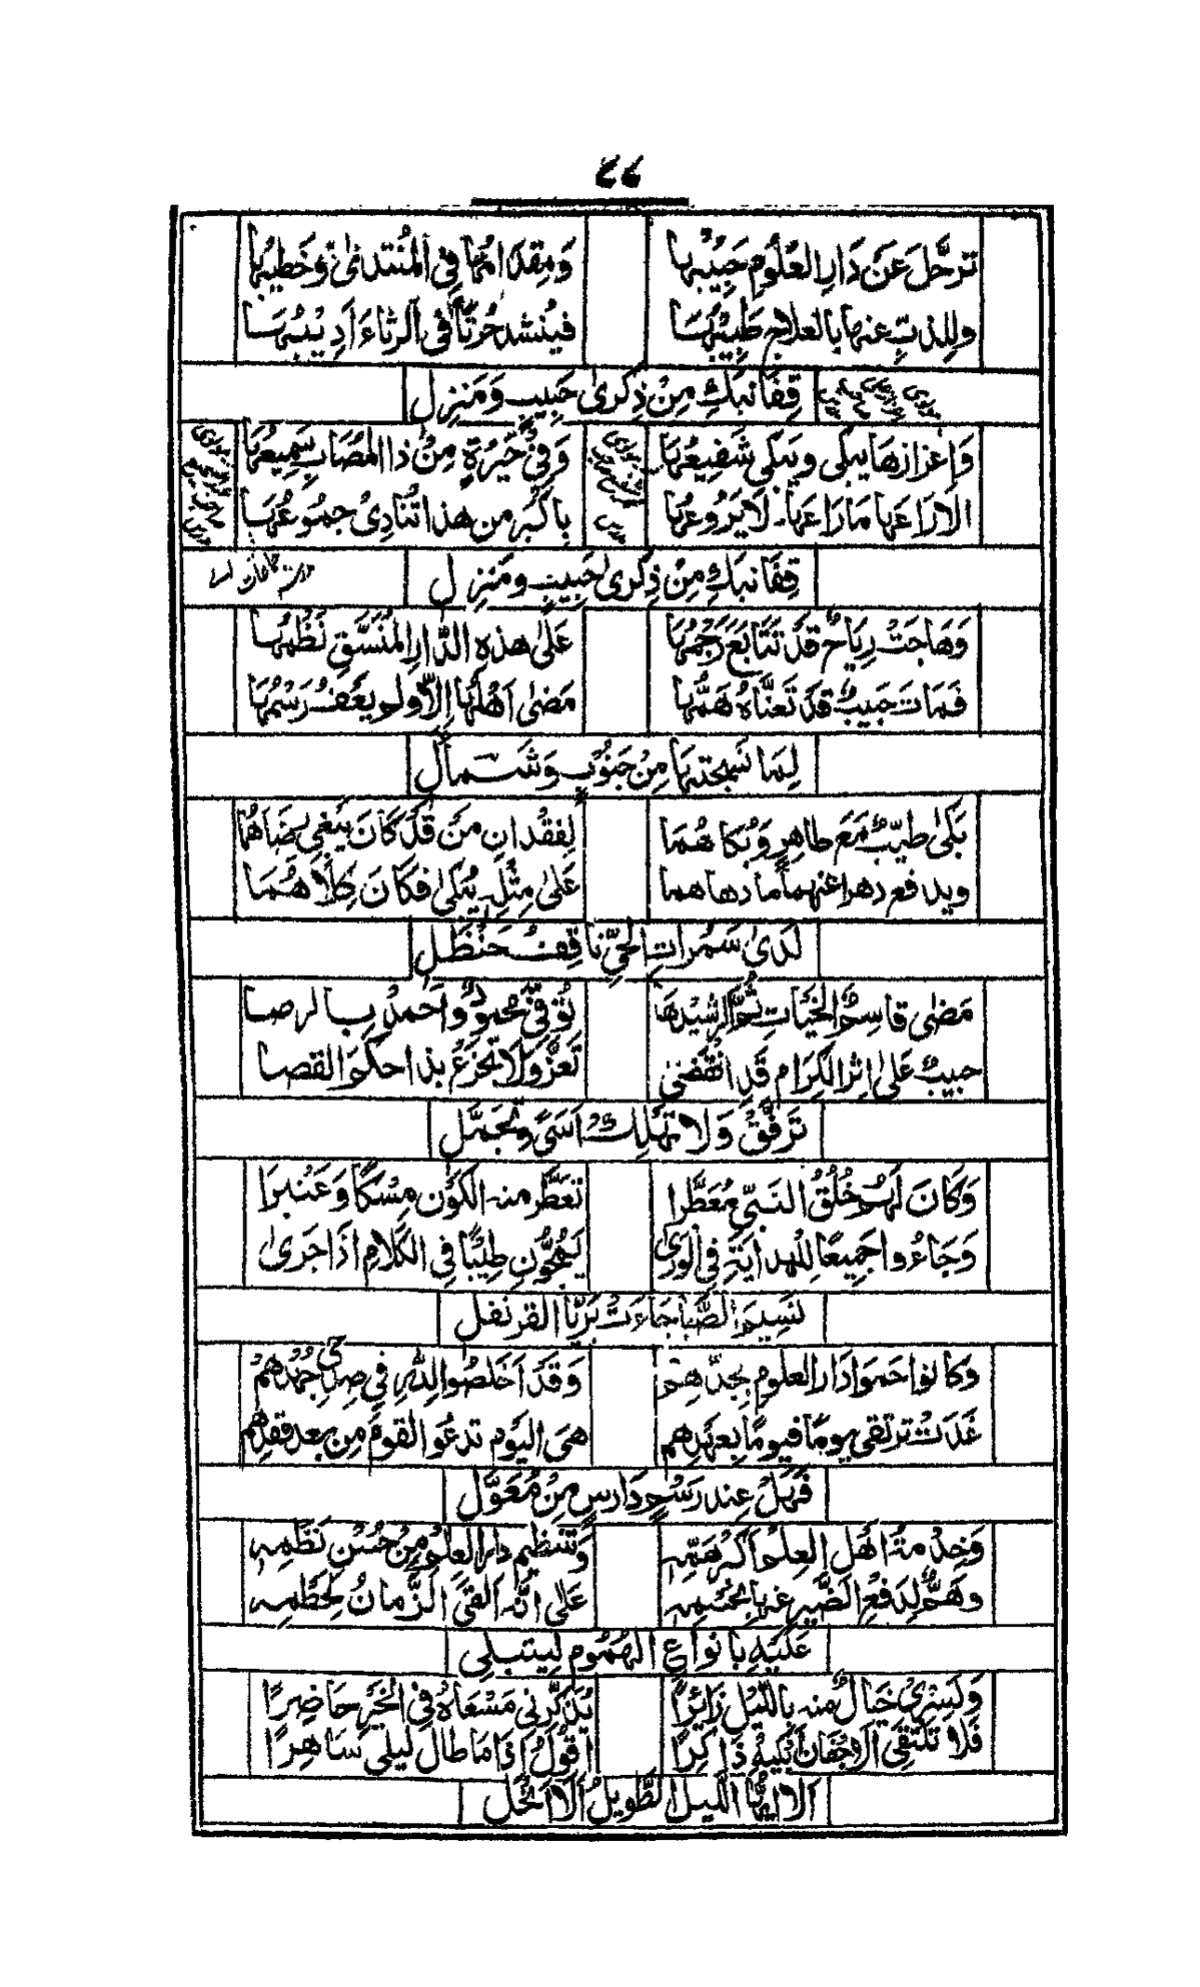 تَرَحَّلَ عَنْ دَارِ العُلُومِ حَبِيبُهَا وَمِقدَامُهَا فِي المُنْتَدىٰ وَخَطِيبُهَا
وللذبِّ عنها بالعلاج طَبِيْبُهَا فيُنشد حُزناً فى الرثاء اَدِيْبُهَا
قِفَا نبكِ مِنْ ذِكرىٰ حَبِيبٍ وَمَنزِل
وَاِعزازهَا يبكى ويبكي شَفِيعُهَا وَفِي حَيْرَةٍ مِنْ ذا المُصَابِ سَمِيعُهَا
الا رَاعَهَا مَا رَاعَهَا لَا يَرُوعُهَا بِاَكْبَر من هذا تُنَادِىْ جمُوعُهَا
قِفَا نبكِ مِنْ ذِكرىٰ حَبِيبٍ ومَنزِل
وَهَاجَتْ رِيَاحٌ قَدْ تَتَابَعَ رَجْمُهَا عَلىٰ هذهِ الدَّارِ المُنَسَّقِ نَظْمُهَا
فَمَاتَ حَبِيبٌ قد تَعنَّاهُ هَمُّهَا مَضىٰ اَهْلُهَا الاُولى ولم يَعْفُ رَسْمُهَا
لِمَا نسَجَتهَا مِنْ جَنُوْبٍ وَشَمأَل
بَكىٰ طيِّبٌ مَعَ طاهِرٍ وَبُكَاهُمَا لِفقْدانِ مَنْ قَدْ كَانَ يَبْغِى رِضَاهُمَا
ويدفع دهرا عنهما ما دهاهما عَلىٰ مِثْلِه يُبْكىٰ فكَانَ كِلَاهُمَا
لَدىٰ سَمُرَاتِ الحَيِّ ناقِفُ حَنْظَل
مَضىٰ قاسِمُ الخَيراتِ ثُمَّ رَشِيْدُهَا تُوُفِّىَ محمودٌ وَاَحمدُ بالرضا
حبيبٌ عَلىٰ اِثرِ الكِرَامِ قَدِ انْقَضىٰ تَعزَّ ولَا تَجزَعْ بذا حكمَ القضا
تَرَفَّقْ وَلا تهْلِكْ اَسىً وتَجَمَّل
وَكَانَ لَهُم خُلُقُ النَبِيِّ مُعَطَّرا تَعَطَّر منه الكَوْن مِسْكًا وَعَنْبرا
وَجَاءُوا جَمِيعًا لِلهدايَةِ فِي الوَرىٰ يَمُجُّونَ طِيْبًا فِي الكَلامِ اذَا جَرىٰ
نَسِيمَ الصَّبا جَاءَتْ بَرَيَّا القرنفل
وَكانوا حَمَوا دَار العلومِ بجدِّهِم وَقَدْ اَخلَصُوا لِلّٰهِ فِي صِدْقِ جُهْدِهِمْ
غَدَتْ ترتَقى يومًا فيومًا بعهْدِهم هىَ اليَوم تدعُو القَومَ مِن بعد فقدِهم
فَهَلْ عِند رَسْمٍ دَارِسٍ مِنْ مُعَوَّل
وَخِدْمةُ اَهْلِ العِلْمِ اَكْبَر هَمِّهِ وَتنظيم دارِ العِلْمِ مِنْ حُسْنِ نَظْمِهِ
وَهَمَّ لِدَفعِ الضَّيرِ عَنها بحَسْمِهِ عَلى اَنَّه اَلقَى الزَّمانُ لِحَطْمِهِ
عَلَيْهِ بِاَنواعِ الهُمُومِ لِيبتَلِي
وَيَسْرِىْ خَيالٌ منه بالليْلِ زَائرًا يُذَكِّرُني مَسْعَاهُ فِي الخَيْرِ حَاضِرًا
فَلا تَلْتَقِى الاجْفانُ اَبْكِيْهِ ذَاكِرًا اَقُولُ اِذا مَا طالَ ليلىَ سَاهِرًا
اَلا ايُّهَا اللَّيلُ الطَّوِيلُ اَلَا انْجَل